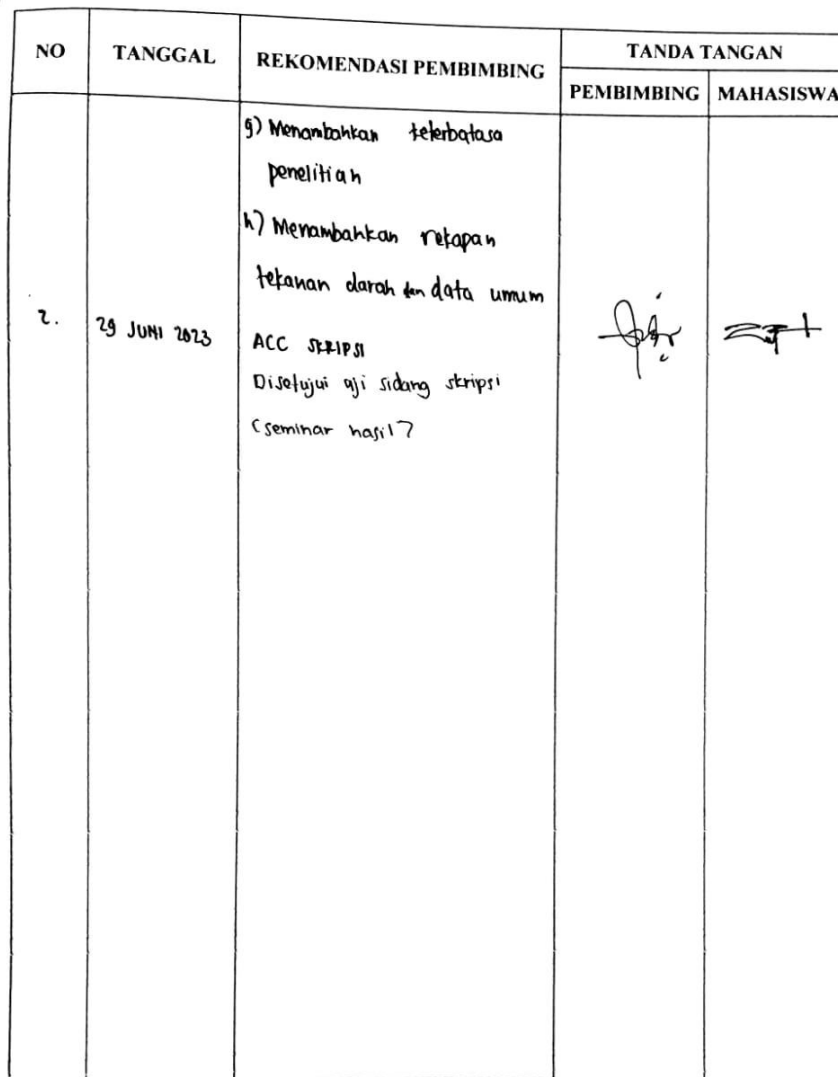 NO TANGGAL REKOMENDASI PEMBIMBING TANDA TANGAN
PEMBIMBING MAHASISWA
g) Menambahkan keterbatasa
penelitian
h) Menambahkan rekapan
tekanan darah dan data umum
2. 29 JUNI 2023
ACC SKRIPSI
Disetujui uji sidang skripsi
(seminar hasil)